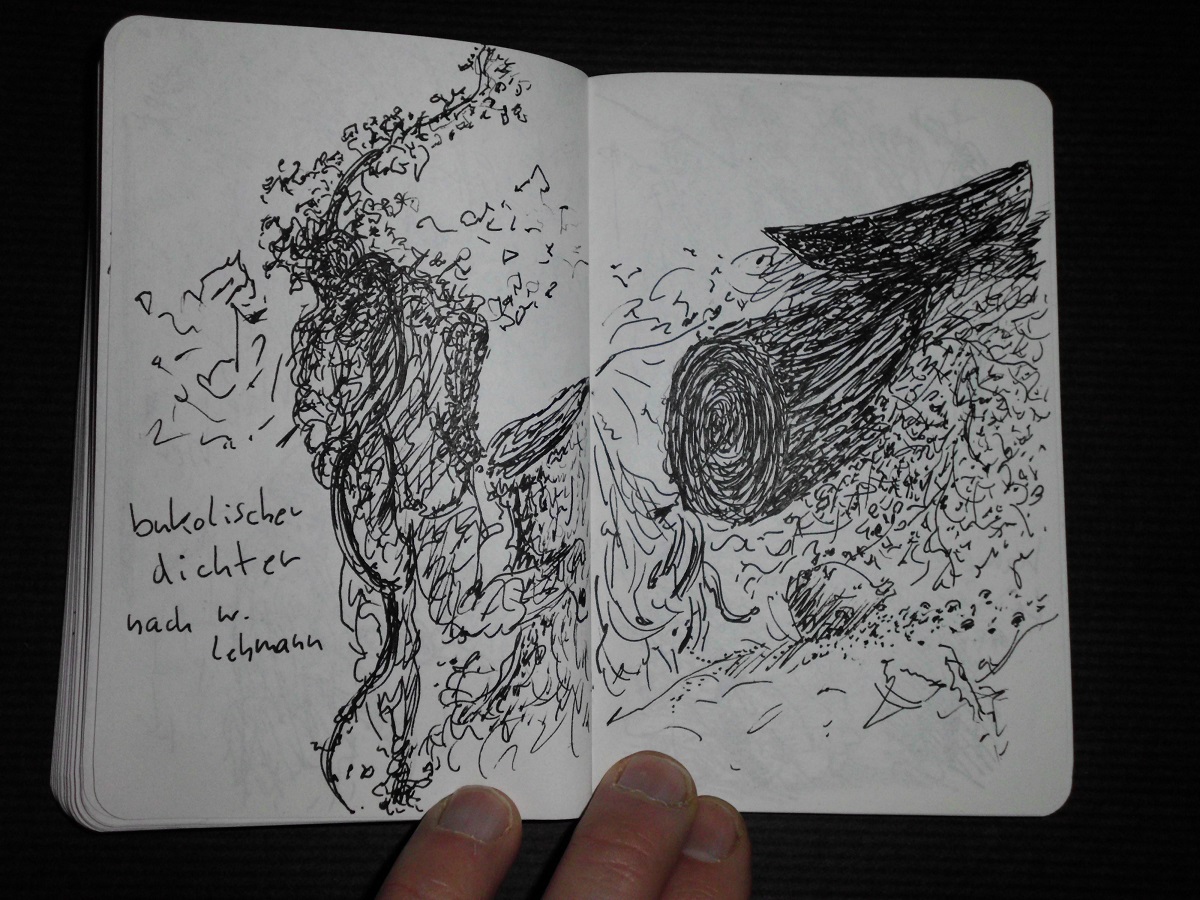 bukolischer
dichter
nach w.
lehmann